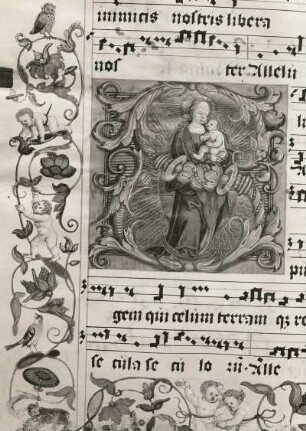 inimicis nostris libera
nos ter Allelu
li
pu
gem qui celum terram qz re
se cula se cu lo rū. Alle